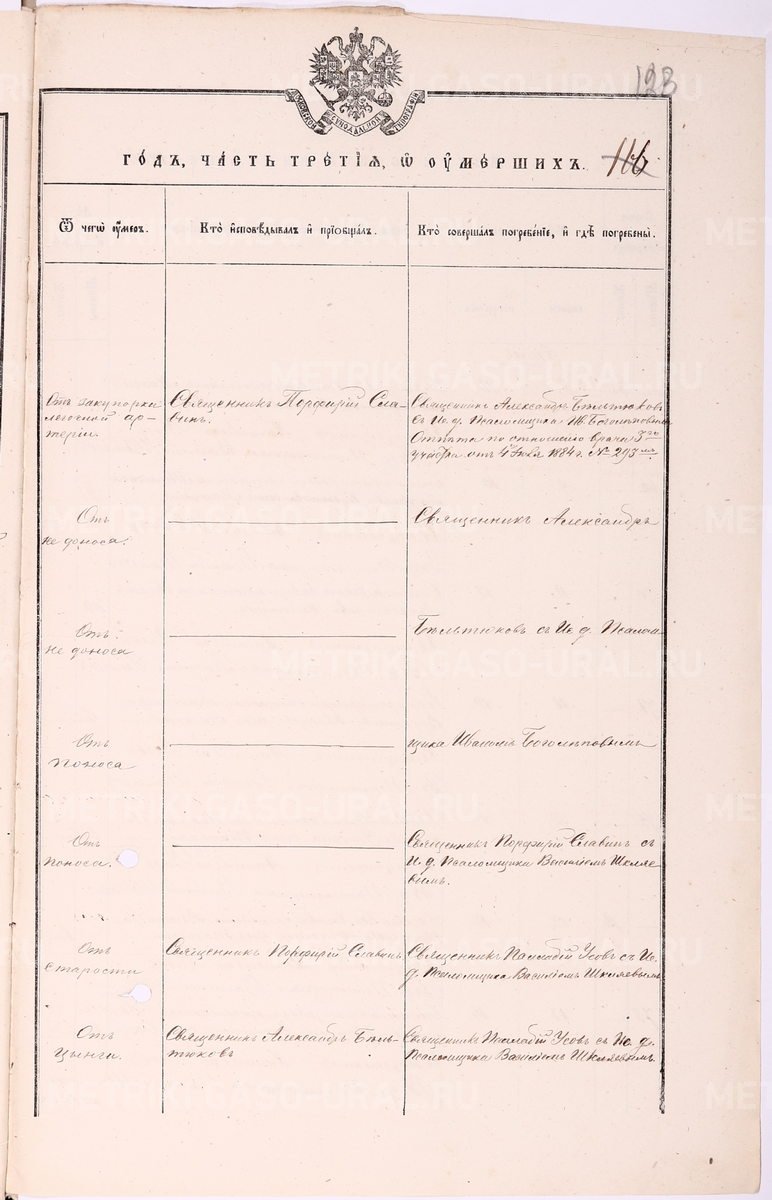 128
МОСКОВСКОЙ СѴНОДАЛЬНОЙ ТИПОГРАФІИ
ГО́ДЪ, ЧА́СТЬ ТРЕ́ТІѦ, Ѽ ОУМЕ́РШИХЪ.
116
Ѿ чегѡ̀ ᲂу҆́меръ.
Кто̀ и҆сповѣ́дывалъ и҆ прїѻбща́лъ.
Кто̀ соверша́лъ погребе́нїе, и҆ гдѣ̀ погребены̀.
Отъ закупорки
легочной ар-
теріи.
Священникъ Порфирій Сла-
винъ.
Священникъ Александръ Бѣльтюковъ
съ И. д. Псаломщика Ив. Боголѣповымъ
Отпѣта по отношенію врача 3го
участка отъ 4 Іюля 1884 г. № 293мъ.
Отъ
не доноса.
Священникъ Александръ
Отъ
не доноса
Бѣльтюковъ съ И. д. Псалом-
Отъ
поноса
щика Иваномъ Боголѣповымъ
Отъ
поноса.
Священникъ Порфирій Славинъ съ
И. д. Псаломщика Василіемъ Шкляе-
вымъ.
Отъ
старости
Священникъ Порфирій Славинъ
Священникъ Палладій Усовъ съ И.
д. Псаломщика Василіемъ Шкляевымъ
Отъ
цынги.
Священникъ Александръ Бѣль-
тюковъ
Священникъ Палладій Усовъ съ И. д.
Псаломщика Василіемъ Шкляевымъ.
METRIKI.GASO-URAL.RU